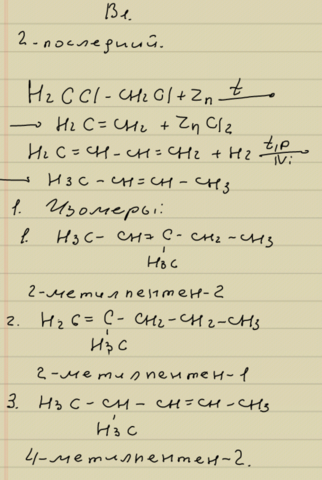 В1.
2-последний.
H2CCl-CH2Cl+Zn t→
→ H2C=CH2 + ZnCl2
H2C=CH-CH=CH2 + H2 t,p Ni
→ H3C-CH=CH-CH3
1. Изомеры:
1. H3C-CH=C-CH2-CH3
H3C
2-метилпентен-2
2. H2C=C-CH2-CH2-CH3
H3C
2-метилпентен-1
3. H3C-CH-CH=CH-CH3
H3C
4-метилпентен-2.